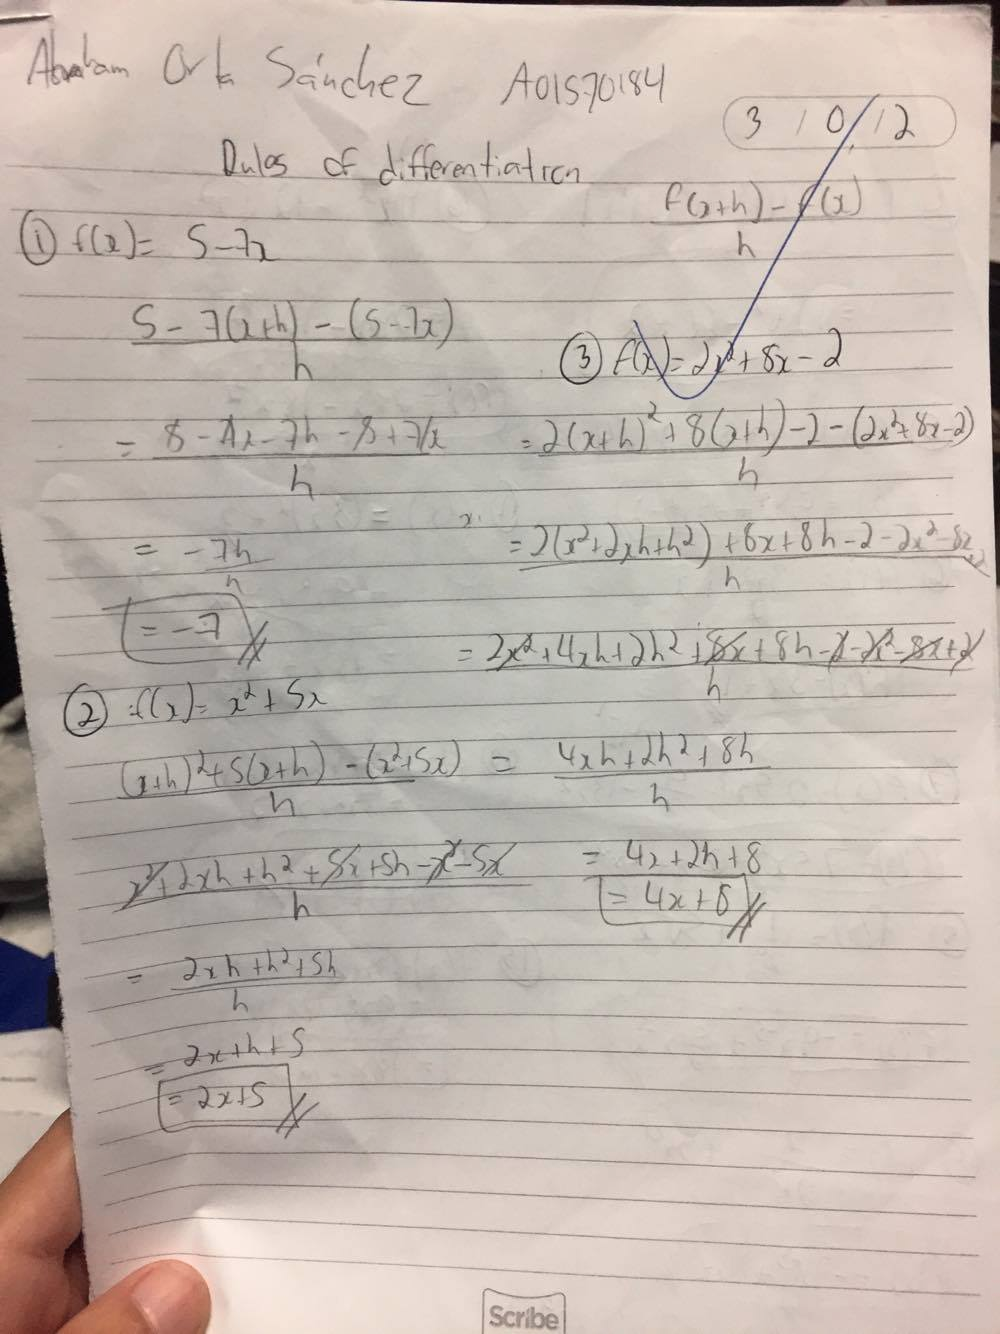 Abraham Orta Sánchez A01570184
3 / 0 / 12
Rules of differentiation
f(x+h) - f(x)
h
① f(x) = 5 - 7x
5 - 7(x+h) - (5-7x)
h
= 5 - 7x - 7h - 5 + 7x
h
= -7h
h
= -7
② f(x) = x² + 5x
(x+h)² + 5(x+h) - (x²+5x)
h
x² + 2xh + h² + 5x + 5h - x² - 5x
h
= 2xh + h² + 5h
h
= 2x + h + 5
= 2x + 5
③ f(x) = 2x² + 8x - 2
= 2(x+h)² + 8(x+h) - 2 - (2x²+8x-2)
h
= 2(x²+2xh+h²) + 8x + 8h - 2 - 2x² - 8x +2
h
= 2x² + 4xh + 2h² + 8x + 8h - 2 - 2x² - 8x + 2
h
= 4xh + 2h² + 8h
h
= 4x + 2h + 8
= 4x + 8
Scribe